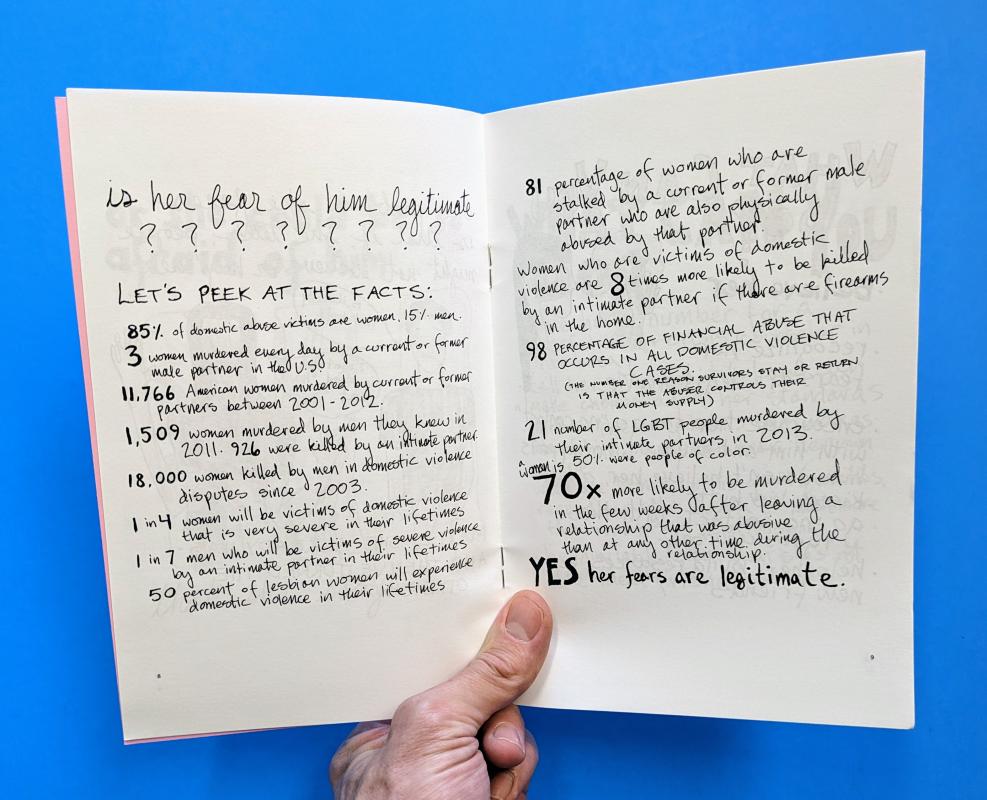 is her fear of him legitimate
? ? ? ? ? ? ? ?
LET'S PEEK AT THE FACTS:
85% of domestic abuse victims are women, 15% men.
3 women murdered every day by a current or former
male partner in the U.S.
11,766 American women murdered by current or former
partners between 2001-2012.
1,509 women murdered by men they knew in
2011. 926 were killed by an intimate partner.
18,000 women killed by men in domestic violence
disputes since 2003.
1 in 4 women will be victims of domestic violence
that is very severe in their lifetimes
1 in 7 men who will be victims of severe violence
by an intimate partner in their lifetimes
50 percent of lesbian women will experience
domestic violence in their lifetimes
8
81 percentage of women who are
stalked by a current or former male
partner who are also physically
abused by that partner.
Women who are victims of domestic
violence are 8 times more likely to be killed
by an intimate partner if there are firearms
in the home.
98 PERCENTAGE OF FINANCIAL ABUSE THAT
OCCURS IN ALL DOMESTIC VIOLENCE
CASES.
(THE NUMBER ONE REASON SURVIVORS STAY OR RETURN
IS THAT THE ABUSER CONTROLS THEIR
MONEY SUPPLY)
21 number of LGBT people murdered by
their intimate partners in 2013.
50% were people of color.
a woman is
70x more likely to be murdered
in the few weeks after leaving a
relationship that was abusive
than at any other time during the
relationship.
YES her fears are legitimate.
9